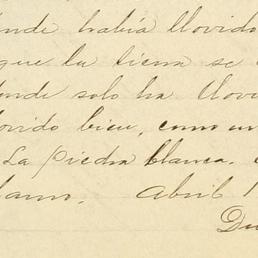 nde había llovido
que la tierra se
onde solo ha llovi
ovido bien, como un
La Piedra blanca.
lamo. Abril 1
Du